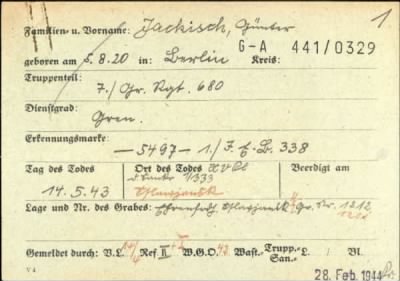 1
Familien- u. Vorname: Jackisch, Günter
G-A 441/0329
geboren am 5.8.20 in: Berlin Kreis:
Truppenteil:
7./Gr. Rgt. 680
Dienstgrad:
Gren.
Erkennungsmarke:
—5497— 1./J. E. B. 338
Tag des Todes Ort des Todes Beerdigt am
14.5.43 1/333
Lage und Nr. des Grabes: Ehrenfrdh. Gr. Nr. 1212
Gemeldet durch: V.L. Ref II W.G.O. 43 Wast.- Trupp.- San.- L. / Bl.
28. Feb. 1944
V 4